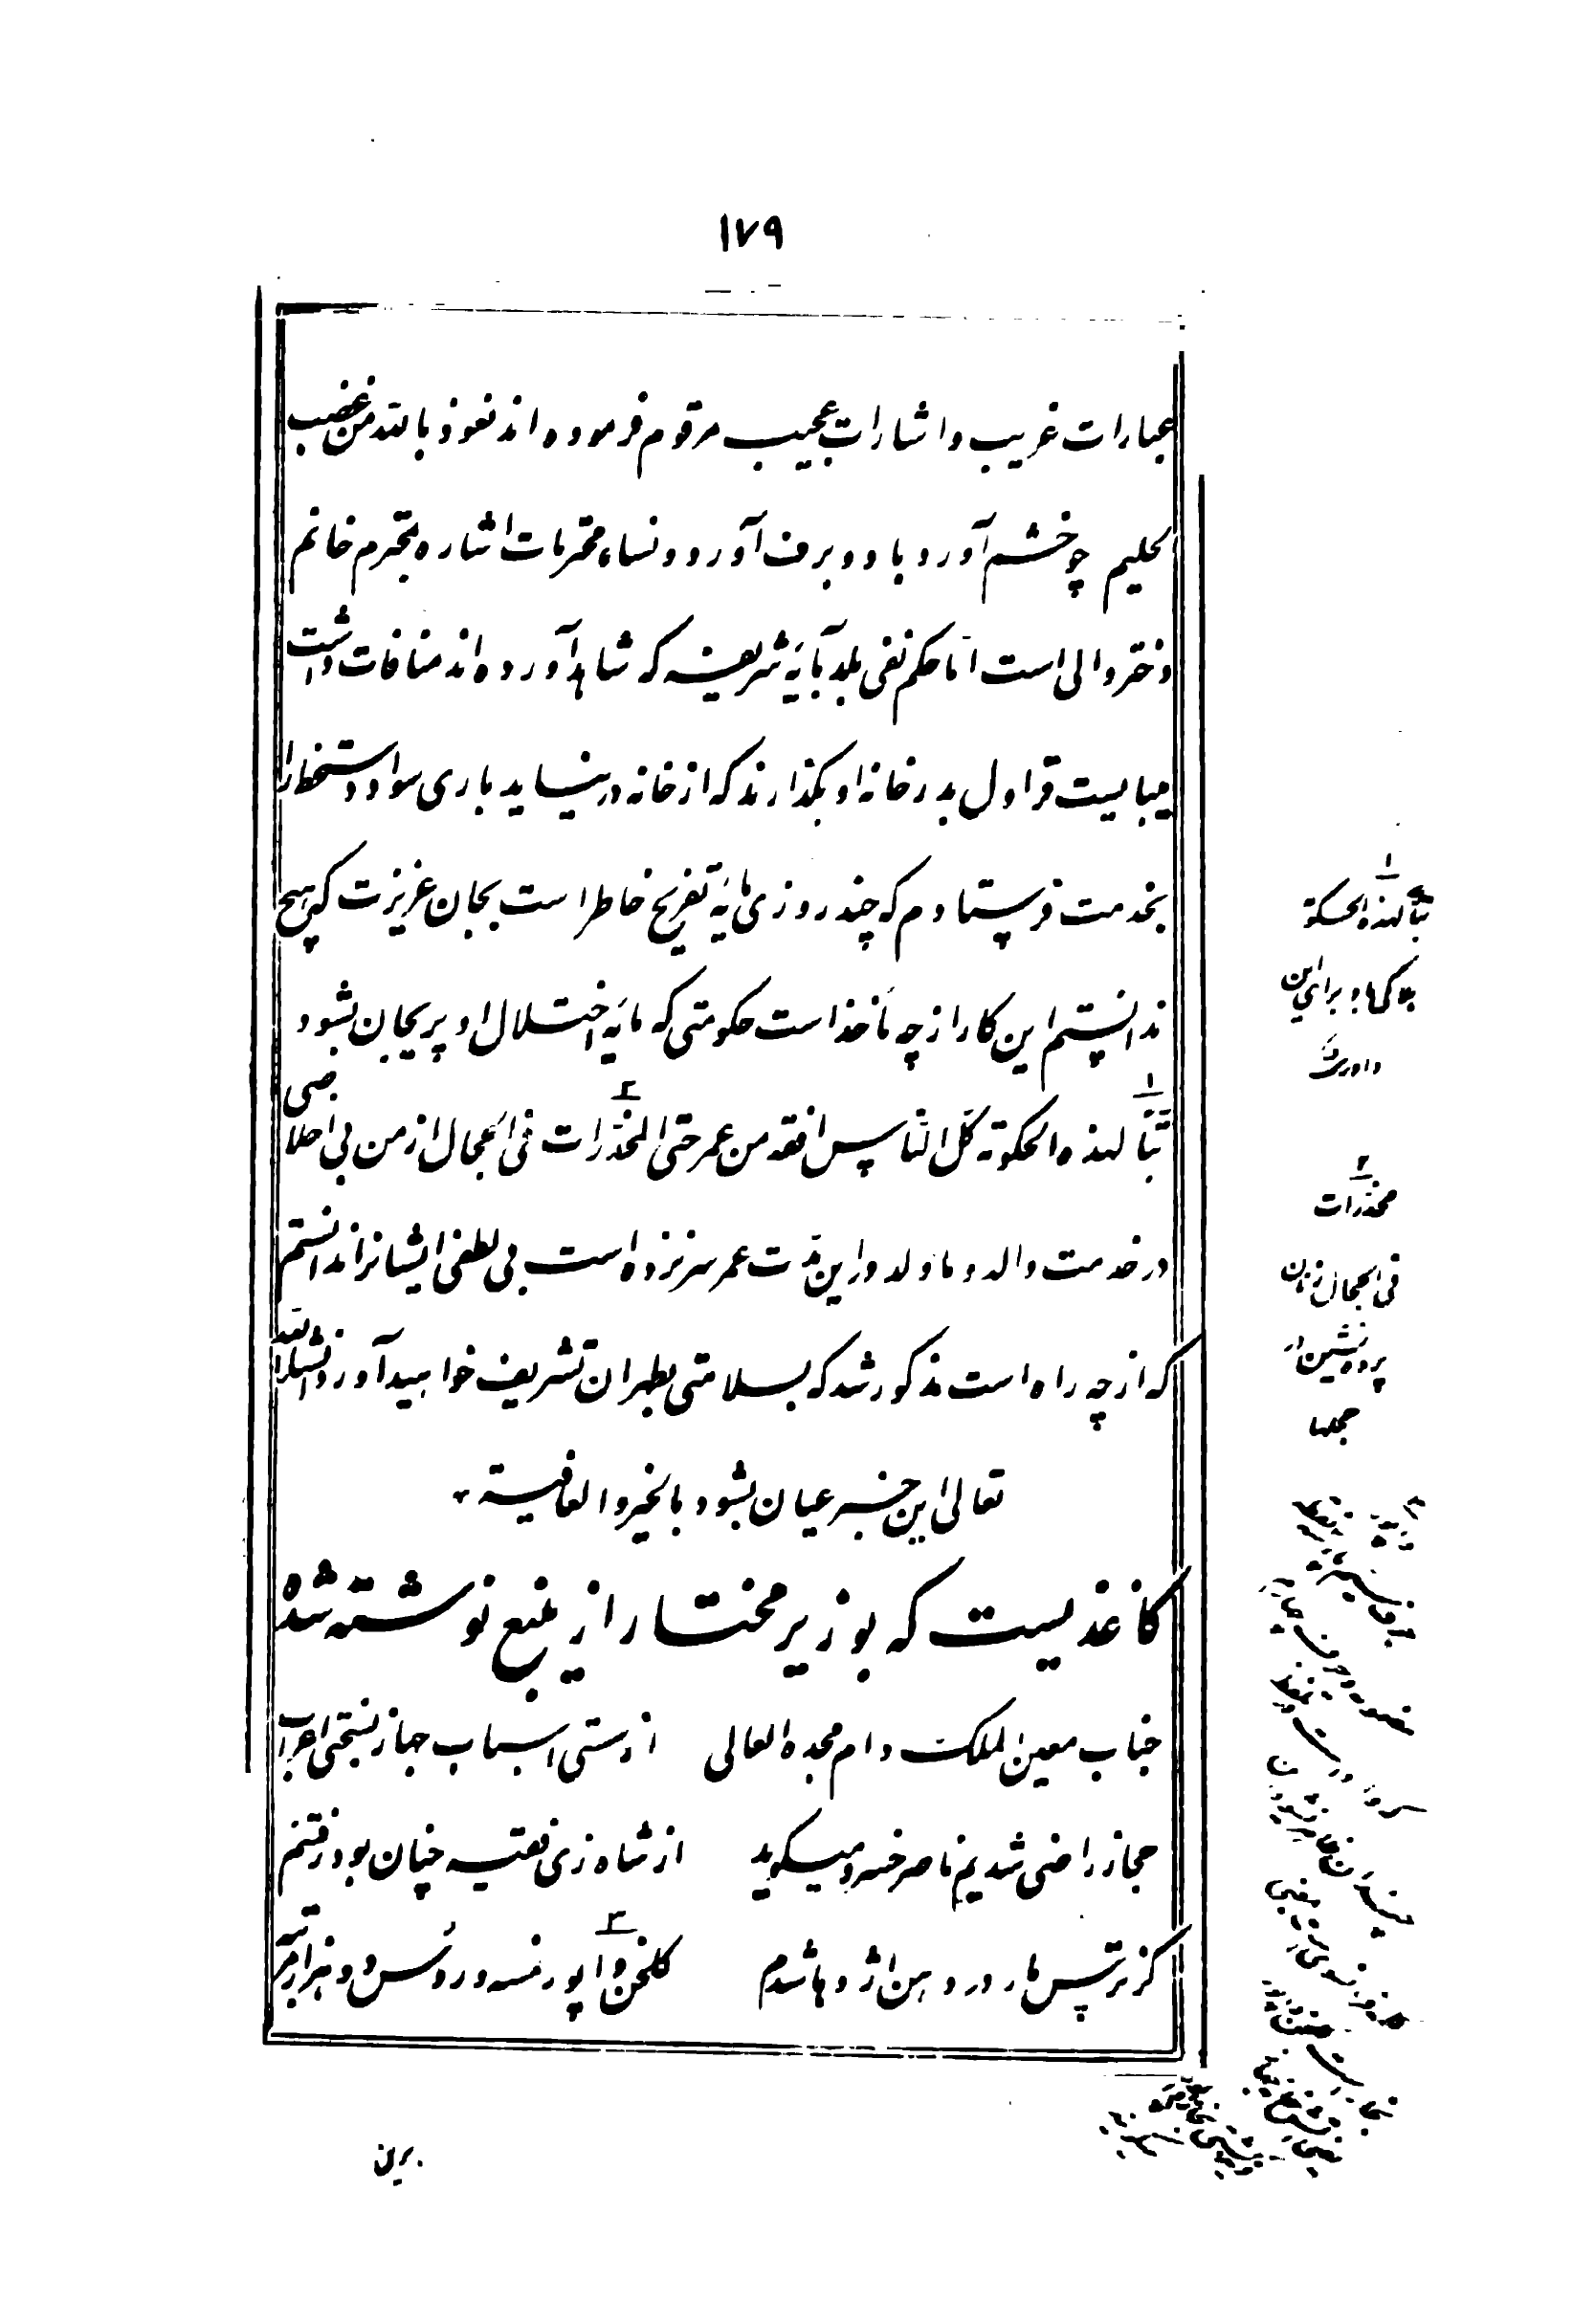 ۱۷۹
عبارات غریب و اشارات عجیب مرقوم فرموده اند نعوذ بالله من غضب
الحلیم چو خشم آورد باد و برف آورد و نساء محترمات اشاره بمحترم خانم
دختر والی است اما حکم نفی بلد بآیه شریفه که شاهد آورده اند منافات داشت
میبایست قراول بدر خانه او بگذارند که از خانه در نیاید باری سواد دستخط را
بخدمت فرستادم که چند روزی مایه تفریح خاطر است بجان عزیزت که هیچ
ندانستم این کار از چه مأخذ است حکومتی که مایه اختلال او پریجان بشود
۱ ۲
تبّاً لهذه الحکومة کلّ الناس افقه من عمر حتی المخدّرات فی الحجال از من بی اخلاصی
در خدمت والد و ما ولد در این مدّت عمر سر نزده است بی لطفی ایشانرا ندانستم
که از چه راه است مذکور شد که بسلامتی بطهران تشریف خواهید آورد انشاء الله
تعالی این خبر عیان بشود بالخیر و العافیة
کاغذیست که بوزیر مختار از ینبع نوشته شده
جناب معین الملک دام مجده العالی از سستی اسباب جهاز بسختی اعراب
حجاز راضی شدیم ناصر خسرو میگوید از شاه زی فقیه چنان بود رفتنم
۳
کز ترس مار در دهن اژدها شدم گلخن واپور نمسه و روس و دو هزار مرتبه
۱
تبّاً لهذه الحکومة
هلاکها و برای این
داوری
۲
مخدرات
فی الحجال زنان
پرده نشین در
حجلها
برین